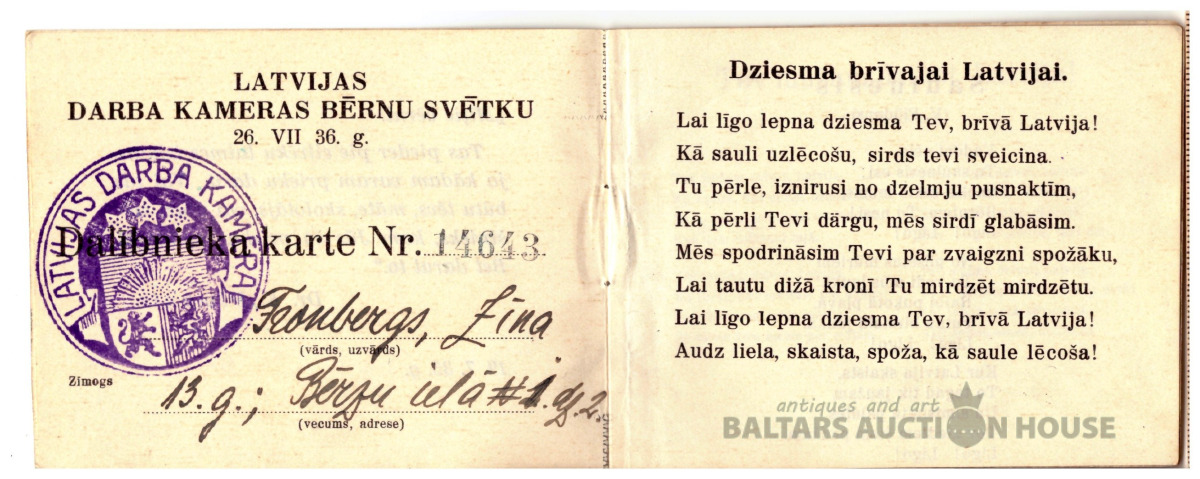 LATVIJAS
DARBA KAMERAS BĒRNU SVĒTKU
26. VII 36. g.
LATVIJAS DARBA KAMERA
Dalībnieka karte Nr. 14643
Fronbergs, Zina
(vārds, uzvārds)
Zīmogs
13. g.; Bērzu ielā #1. dz. 2.
(vecums, adrese)
Dziesma brīvajai Latvijai.
Lai līgo lepna dziesma Tev, brīvā Latvija!
Kā sauli uzlēcošu, sirds tevi sveicina.
Tu pērle, iznirusi no dzelmju pusnaktīm,
Kā pērli Tevi därgu, mēs sirdī glabāsim.
Mēs spodrināsim Tevi par zvaigzni spožāku,
Lai tautu dižā kronī Tu mirdzēt mirdzētu.
Lai līgo lepna dziesma Tev, brīvā Latvija!
Audz liela, skaista, spoža, kā saule lēcoša!
antiques and art
BALTARS AUCTION HOUSE